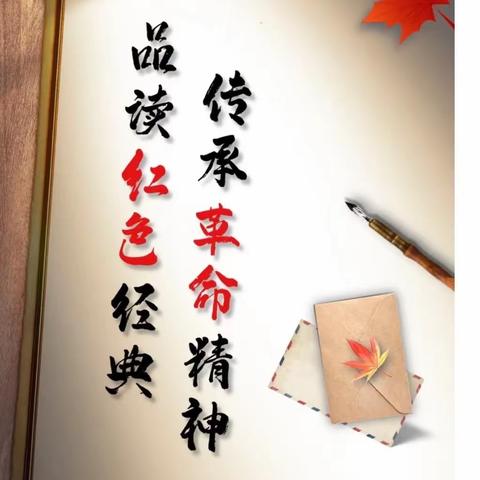 品读红色经典
传承革命精神